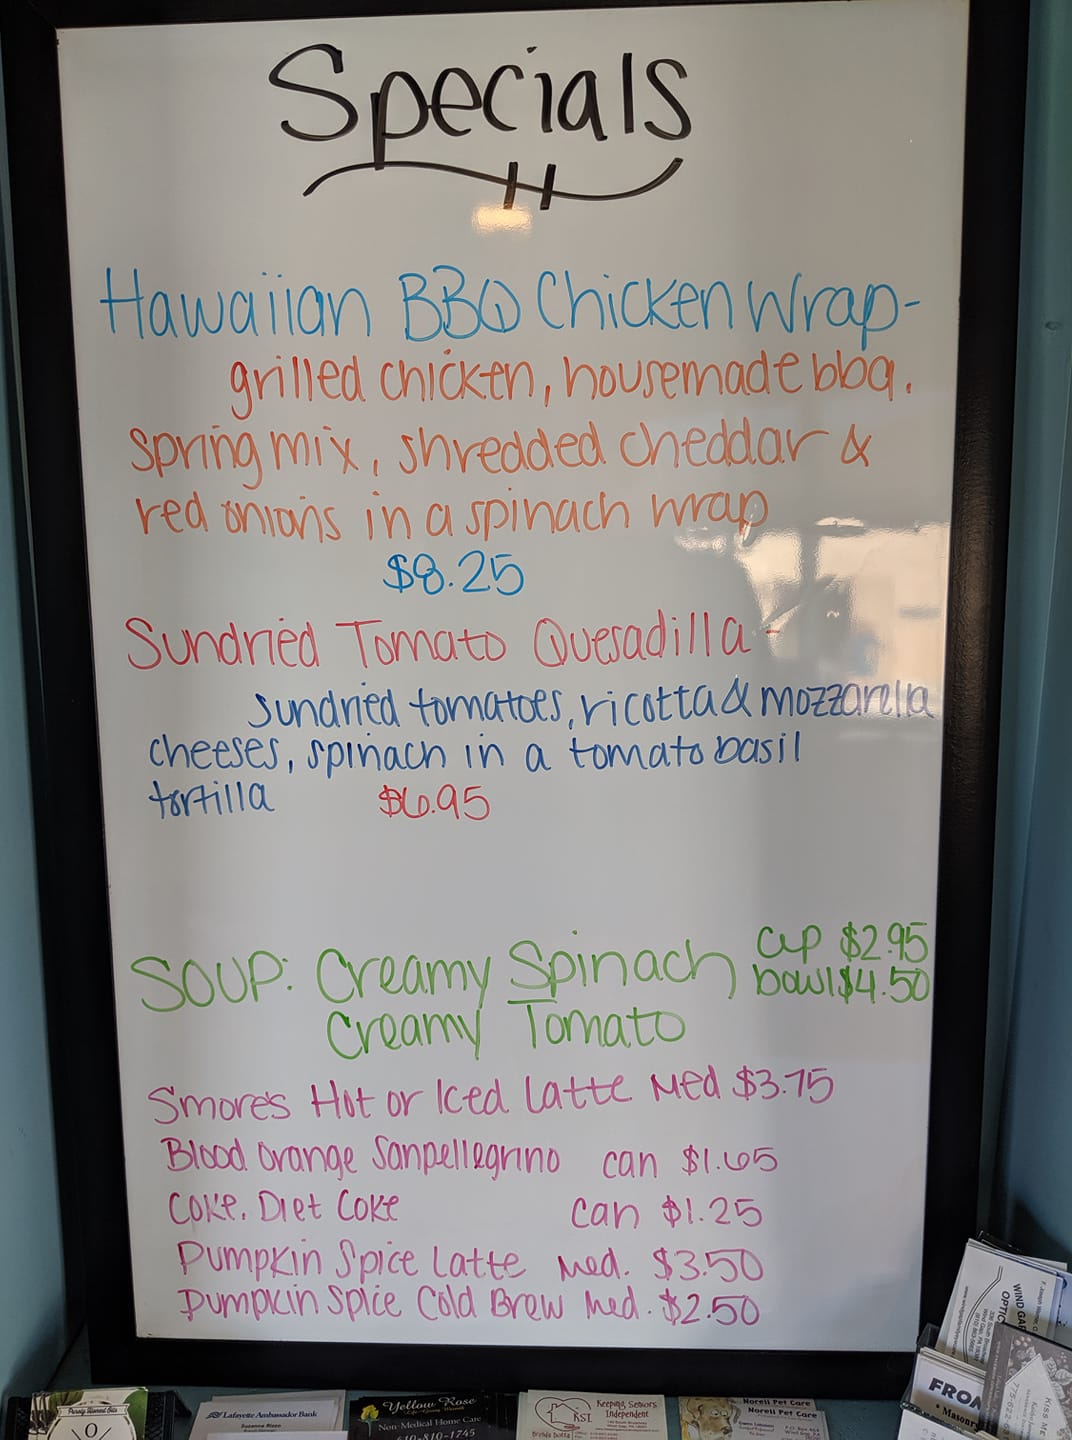 Specials
Hawaiian BBQ Chicken Wrap-
grilled chicken, housemade bbq.
spring mix, shredded cheddar &
red onions in a spinach wrap
$8.25
Sundried Tomato Quesadilla -
sundried tomatoes, ricotta & mozzarella
cheeses, spinach in a tomato basil
tortilla $6.95
SOUP: Creamy Spinach cup $2.95
bowl $4.50
Creamy Tomato
Smores Hot or Iced Latte Med $3.75
Blood Orange Sanpellegrino can $1.65
Coke, Diet Coke can $1.25
Pumpkin Spice Latte Med. $3.50
Pumpkin Spice Cold Brew Med. $2.50
WIND GAP
OPTIC
FROM
• Masonry
KISS ME
Lafayette Ambassador Bank
Suzanne Rizzo
Yellow Rose
Non-Medical Home Care
610-810-1745
KSI
Keeping Seniors
Independent
Norell Pet Care
Norell Pet Care